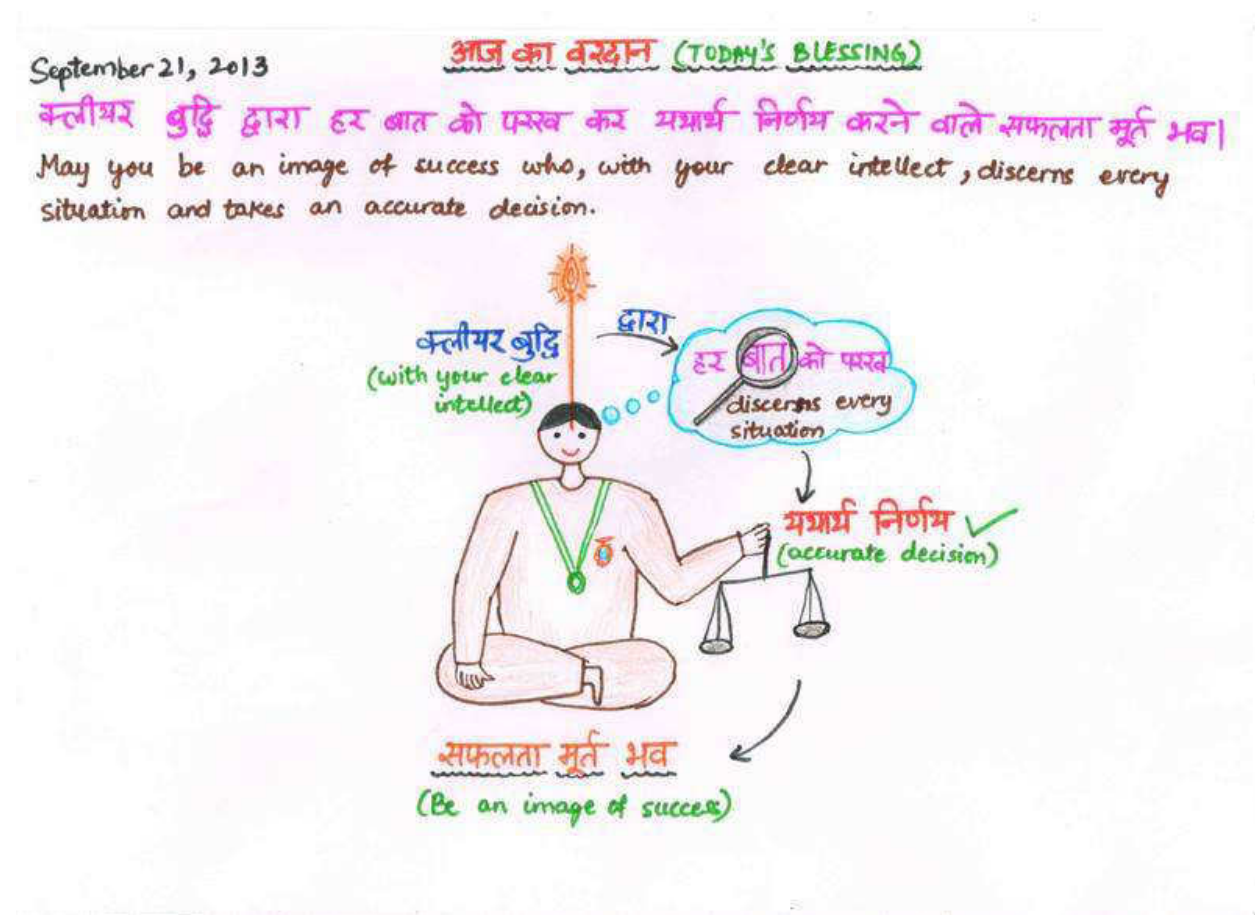 आज का वरदान (TODAY'S BLESSING)
September 21, 2013
क्लीयर बुद्धि द्वारा हर बात को परख कर यथार्थ निर्णय करने वाले सफलता मूर्त भव।
May you be an image of success who, with your clear intellect, discerns every
situation and takes an accurate decision.
क्लीयर बुद्धि
(with your clear
intellect)
द्वारा
हर बात को परख
discerns every
situation
यथार्थ निर्णय
(accurate decision)
सफलता मूर्त भव
(Be an image of success)